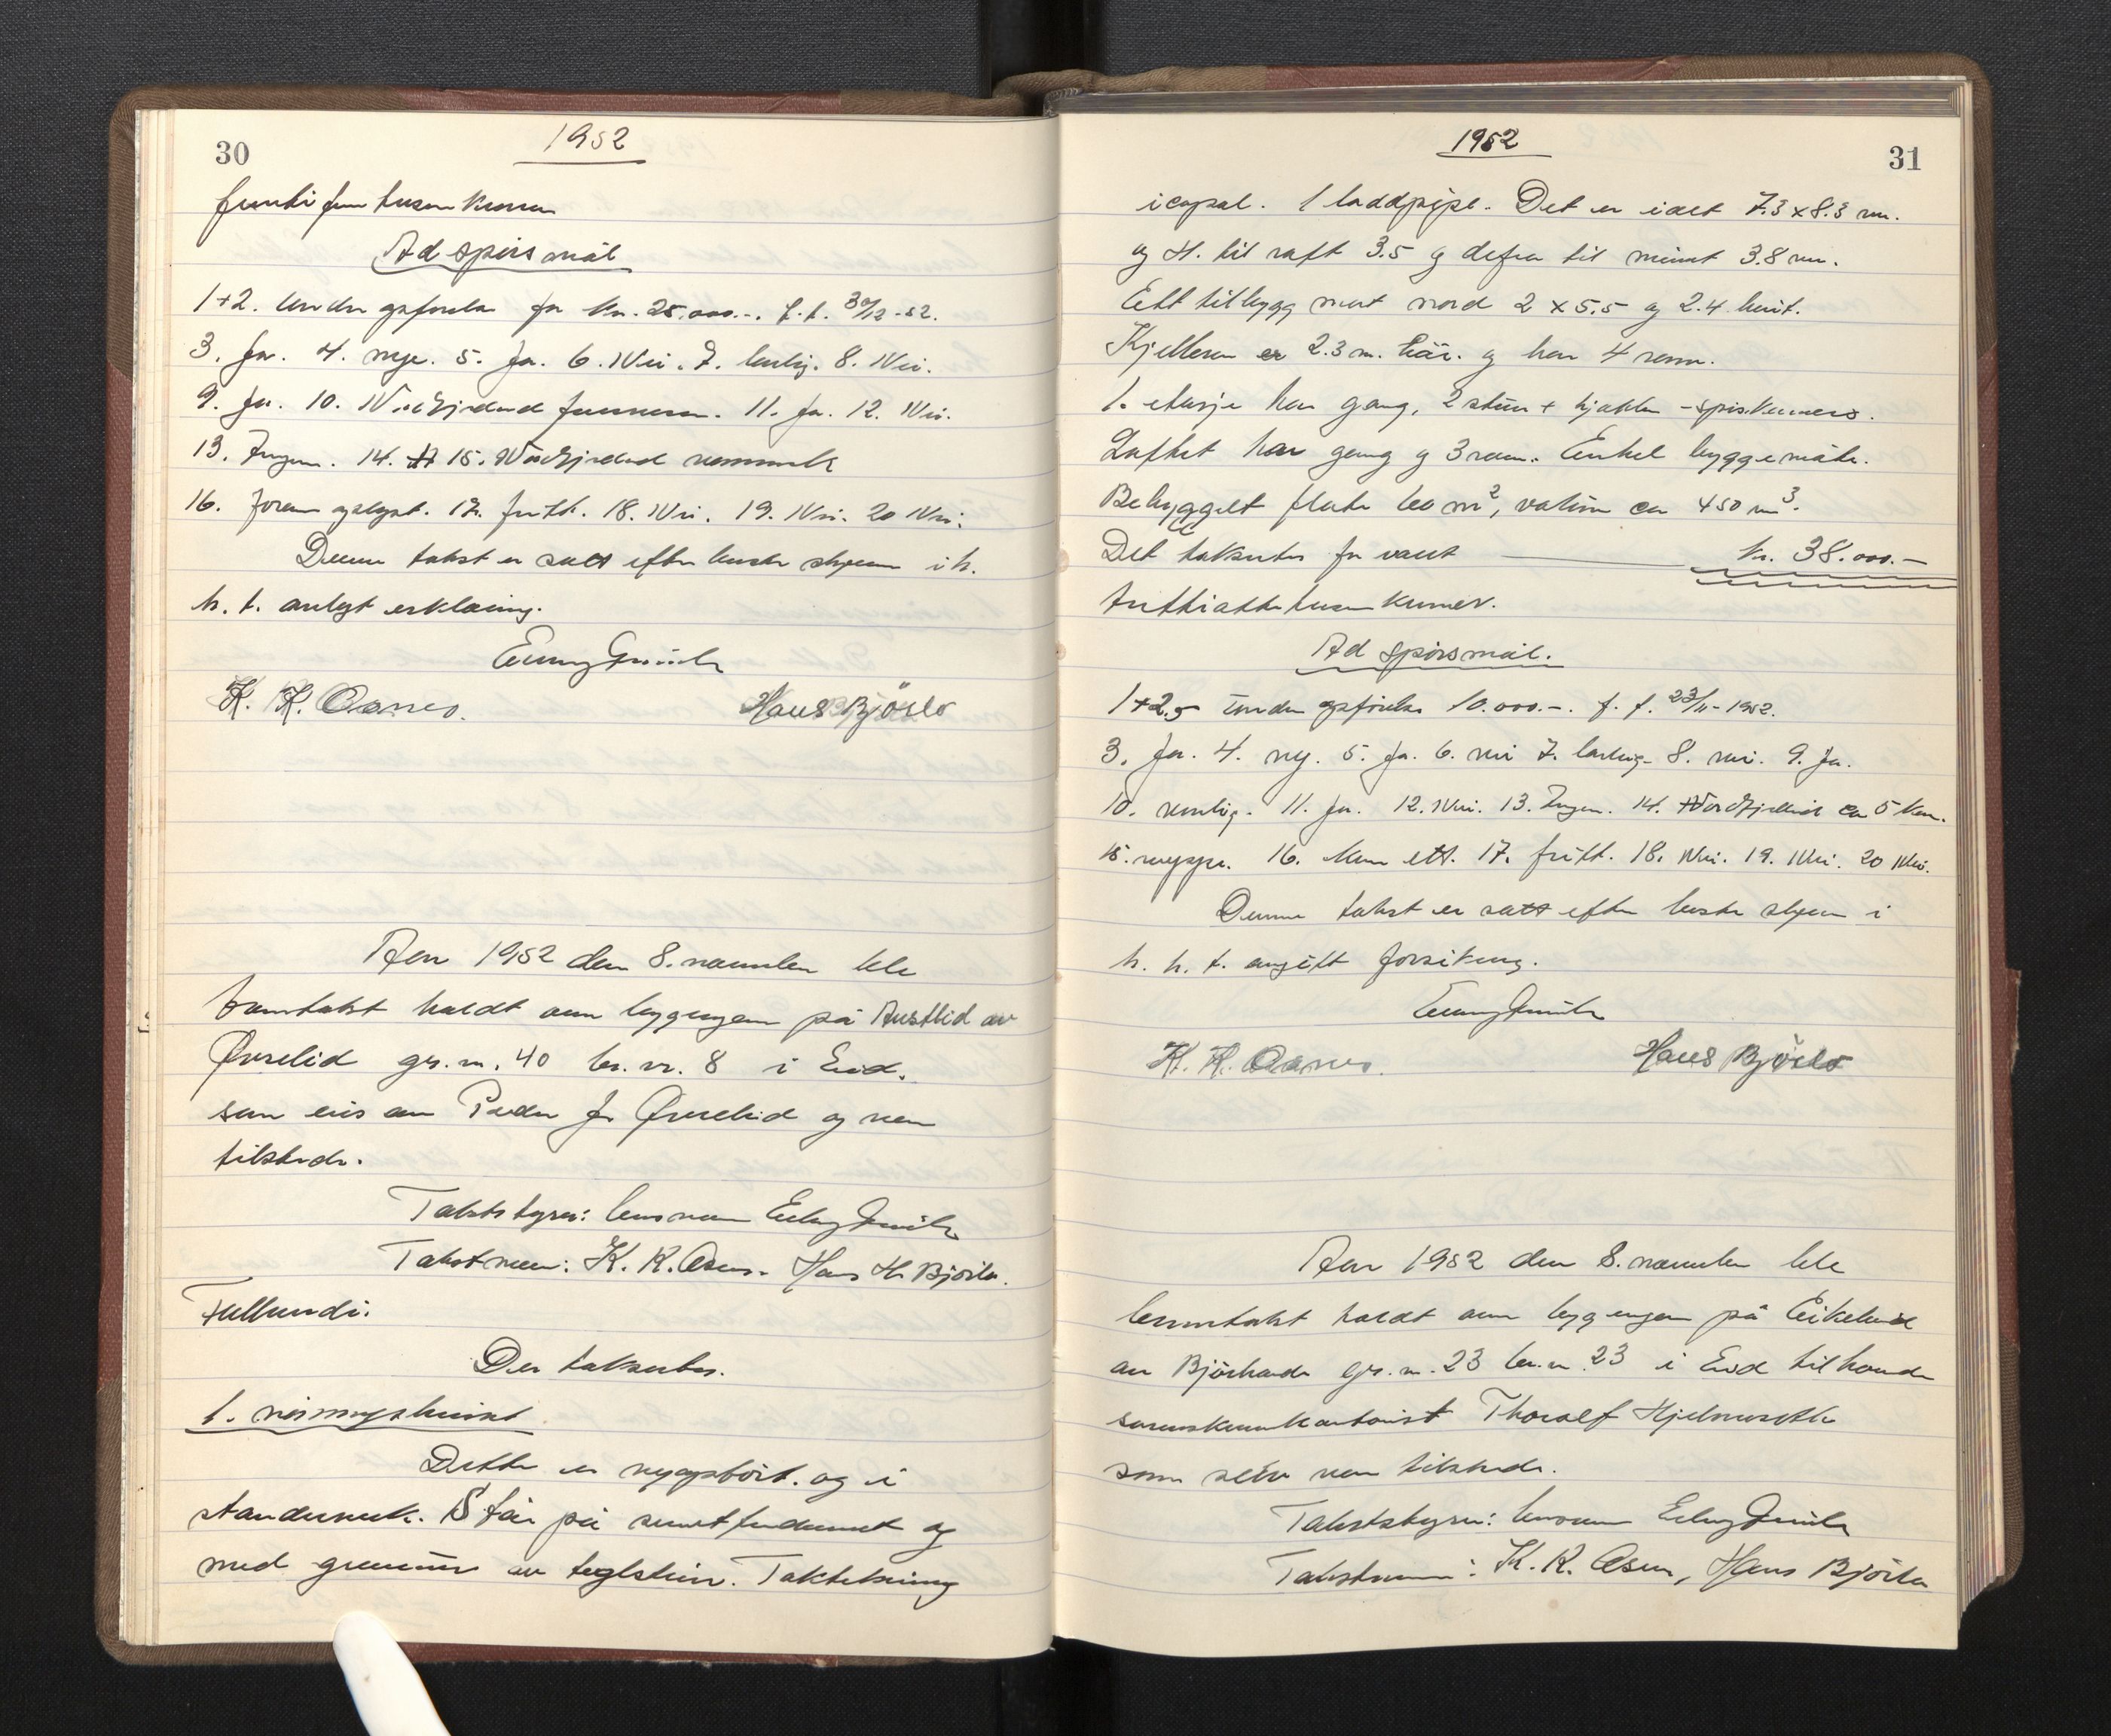 30
1952
fem tusen kroner
Ad spörsmål
1+2. Under oppförelse for kr. 25.000.-. f. t. 30/12-52.
3. Ja. 4. mye. 5. Ja. 6. Nei. 7. lovlig. 8. Nei.
9. Ja. 10. Nordfjordeid 11. Ja. 12. Nei.
13. Ingen. 14. 15. Nordfjordeid
16. 17. fritt. 18. Nei. 19. Nei. 20 Nei.
Denne takst er satt efter beste skjønn i h.
h. t. avlagt erklæring.
K. K. Aanes. Hans Bjørlo
Aar 1952 den 8. november ble
branntakst holdt over bygningen på Austlid av
Øvrelid gr. nr. 40 br. nr. 8 i Eid.
som eies av Peder Øvrelid og var
tilstede.
Takstbestyrer: lensmann
Takstmenn: K. K. Aasen. Hans H. Bjørlo.
Der takseres.
1. våningshuset
Dette er nyoppført. og i
Står på sementfundament og
med grunnmur av teglstein. Taktekning
1952
31
i copal. 1 loddpipe. Det er idet 7.3 x 8.3 m.
og H. til raft 3.5 og defra til mönet 3.8 m.
Ett tilbygg mot nord 2 x 5.5 og 2.4 höit.
Kjelleren er 2.3 m. höi. og har 4 rom.
1. etasje har gang, 2 stuer + kjøkken - spiskammers.
Loftet har gang og 3 rom. Enkel byggemåte.
Bebygget flate 60 m², volum ca 450 m³.
Det takseres for verdt kr. 38.000.-
trettiåtte tusen kroner.
Ad spörsmål.
1+2. Under oppförelse 10.000.-. f. t. 23/11-1952.
3. Ja. 4. ny. 5. Ja. 6. nei 7. lovlig. 8. nei. 9. Ja.
10. vanlig. 11. Ja. 12. Nei. 13. Ingen. 14. Nordfjordeid ca 5 km.
15. 16. ett. 17. fritt. 18. Nei. 19. Nei. 20 Nei.
Denne takst er satt efter beste skjønn i
h. h. t. avgitt forsikring.
K. K. Aanes. Hans Bjørlo
Aar 1952 den 8. november ble
branntakst holdt over bygningen på Eikelund
av Bjørhovde gr. nr. 23 br. nr. 23 i Eid tilhørende
sorenskriverkontorist Thoralf Hjelmeseth
som selv var tilstede.
Takstbestyrer: lensmann
Takstmenn: K. K. Aasen, Hans Bjørlo